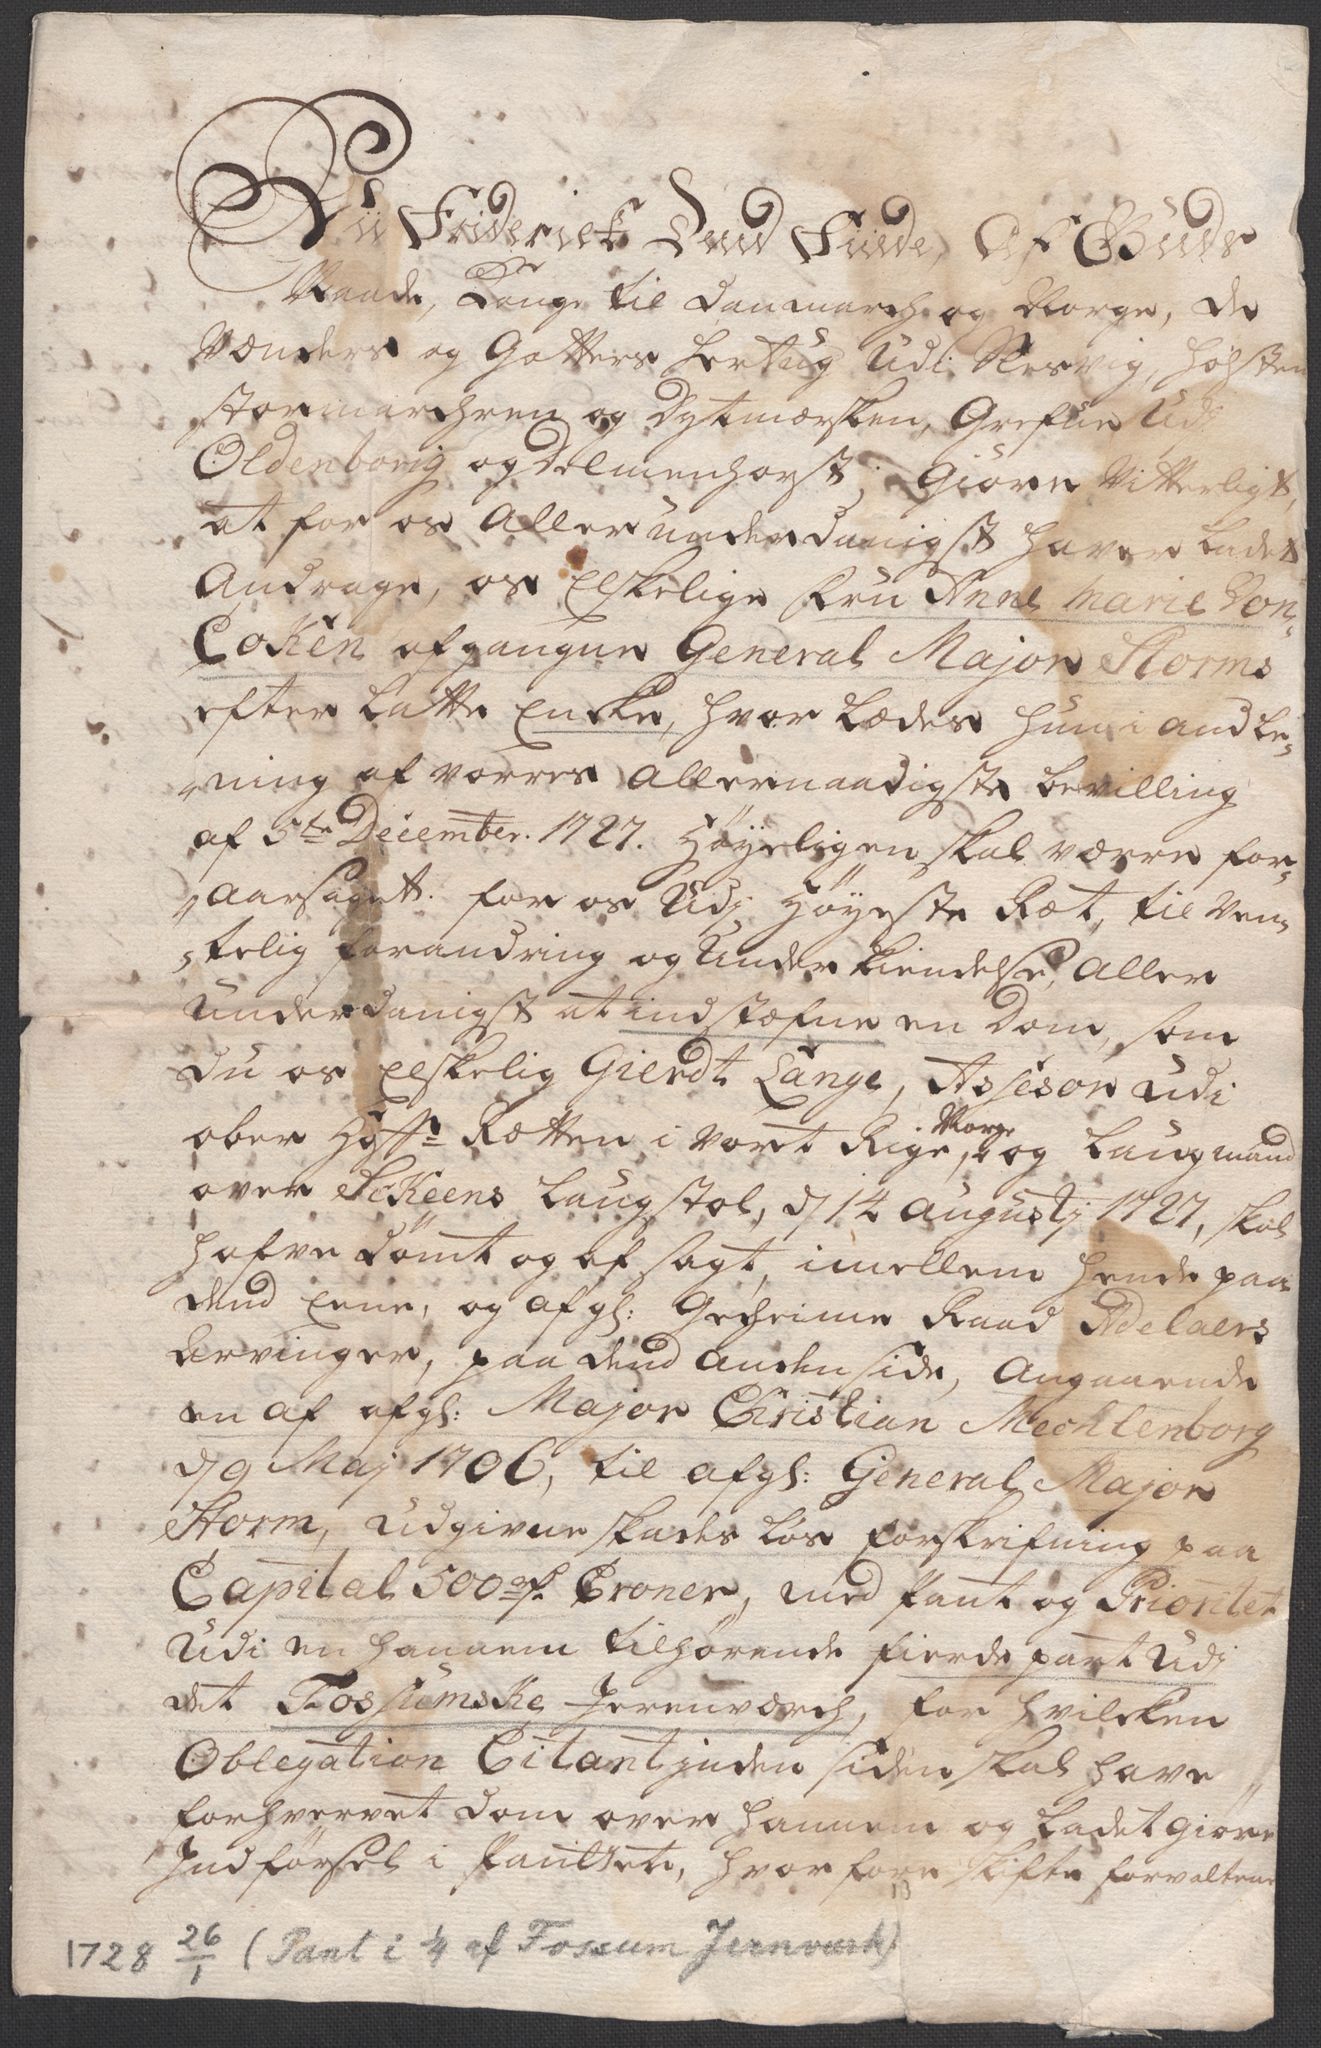 Vii Friderick Dend Fierde, Af Guds
Naade, Konge til Danmarch og Norge, de
Venders og Gotters Hertug Udi Slesvig, Holsten
Stormarchren og Dytmersken, Grefue Udj
Oldenborig og Delmenhorst; Giøre Vitterligt,
at for os Allerunderdanigst haver ladet
Andrage, os Elskelige Fru Anne Marie Von-
Coken afgangne General Major Storms
efter latte Encke, hvorledes hun i andle-
-ning af vorres Allernaadigste bevilling
af 5te December. 1727. Høyeligen skal være for-
-aarsaget. for os Udj Høyeste Ræt, til ven-
-telig forandring og Underkiendelse, Aller
Underdanigst at indstæfne en Dom, som
Du os Elskelig Gierdt Lange, Assesor udi
ober Hoff Rætten i vort Rige Norge, og Laugmand
over SchKeens Laugstol, dj 14 Augustj 1727, skal
hafve dømt og af sagt, imellem hende paa
dend Eene, og afgl: Geheime Raad Adelaers
Arvinger, paa dend anden side, Angaaende
en af afgl: Major Christian Mechlenborg
dj 9 Maj 1706, til afgl: General Major
Storm, udgivne skadesløs forskrifning paa
Capital 500 Croner, med Pant og Prioritet
Udi en hannem tilhørende fierde part Udj
det Fossumske Jerenværch, for hvilcken
Oblegation Citantinden siden skal have
forhvervet dom over hannem og ladet giøre
Indførsel i Pantet, hvorfore skifte forvaltene
13
1728 26/1 (Pant i 1/4 af Fossum Jernværk)